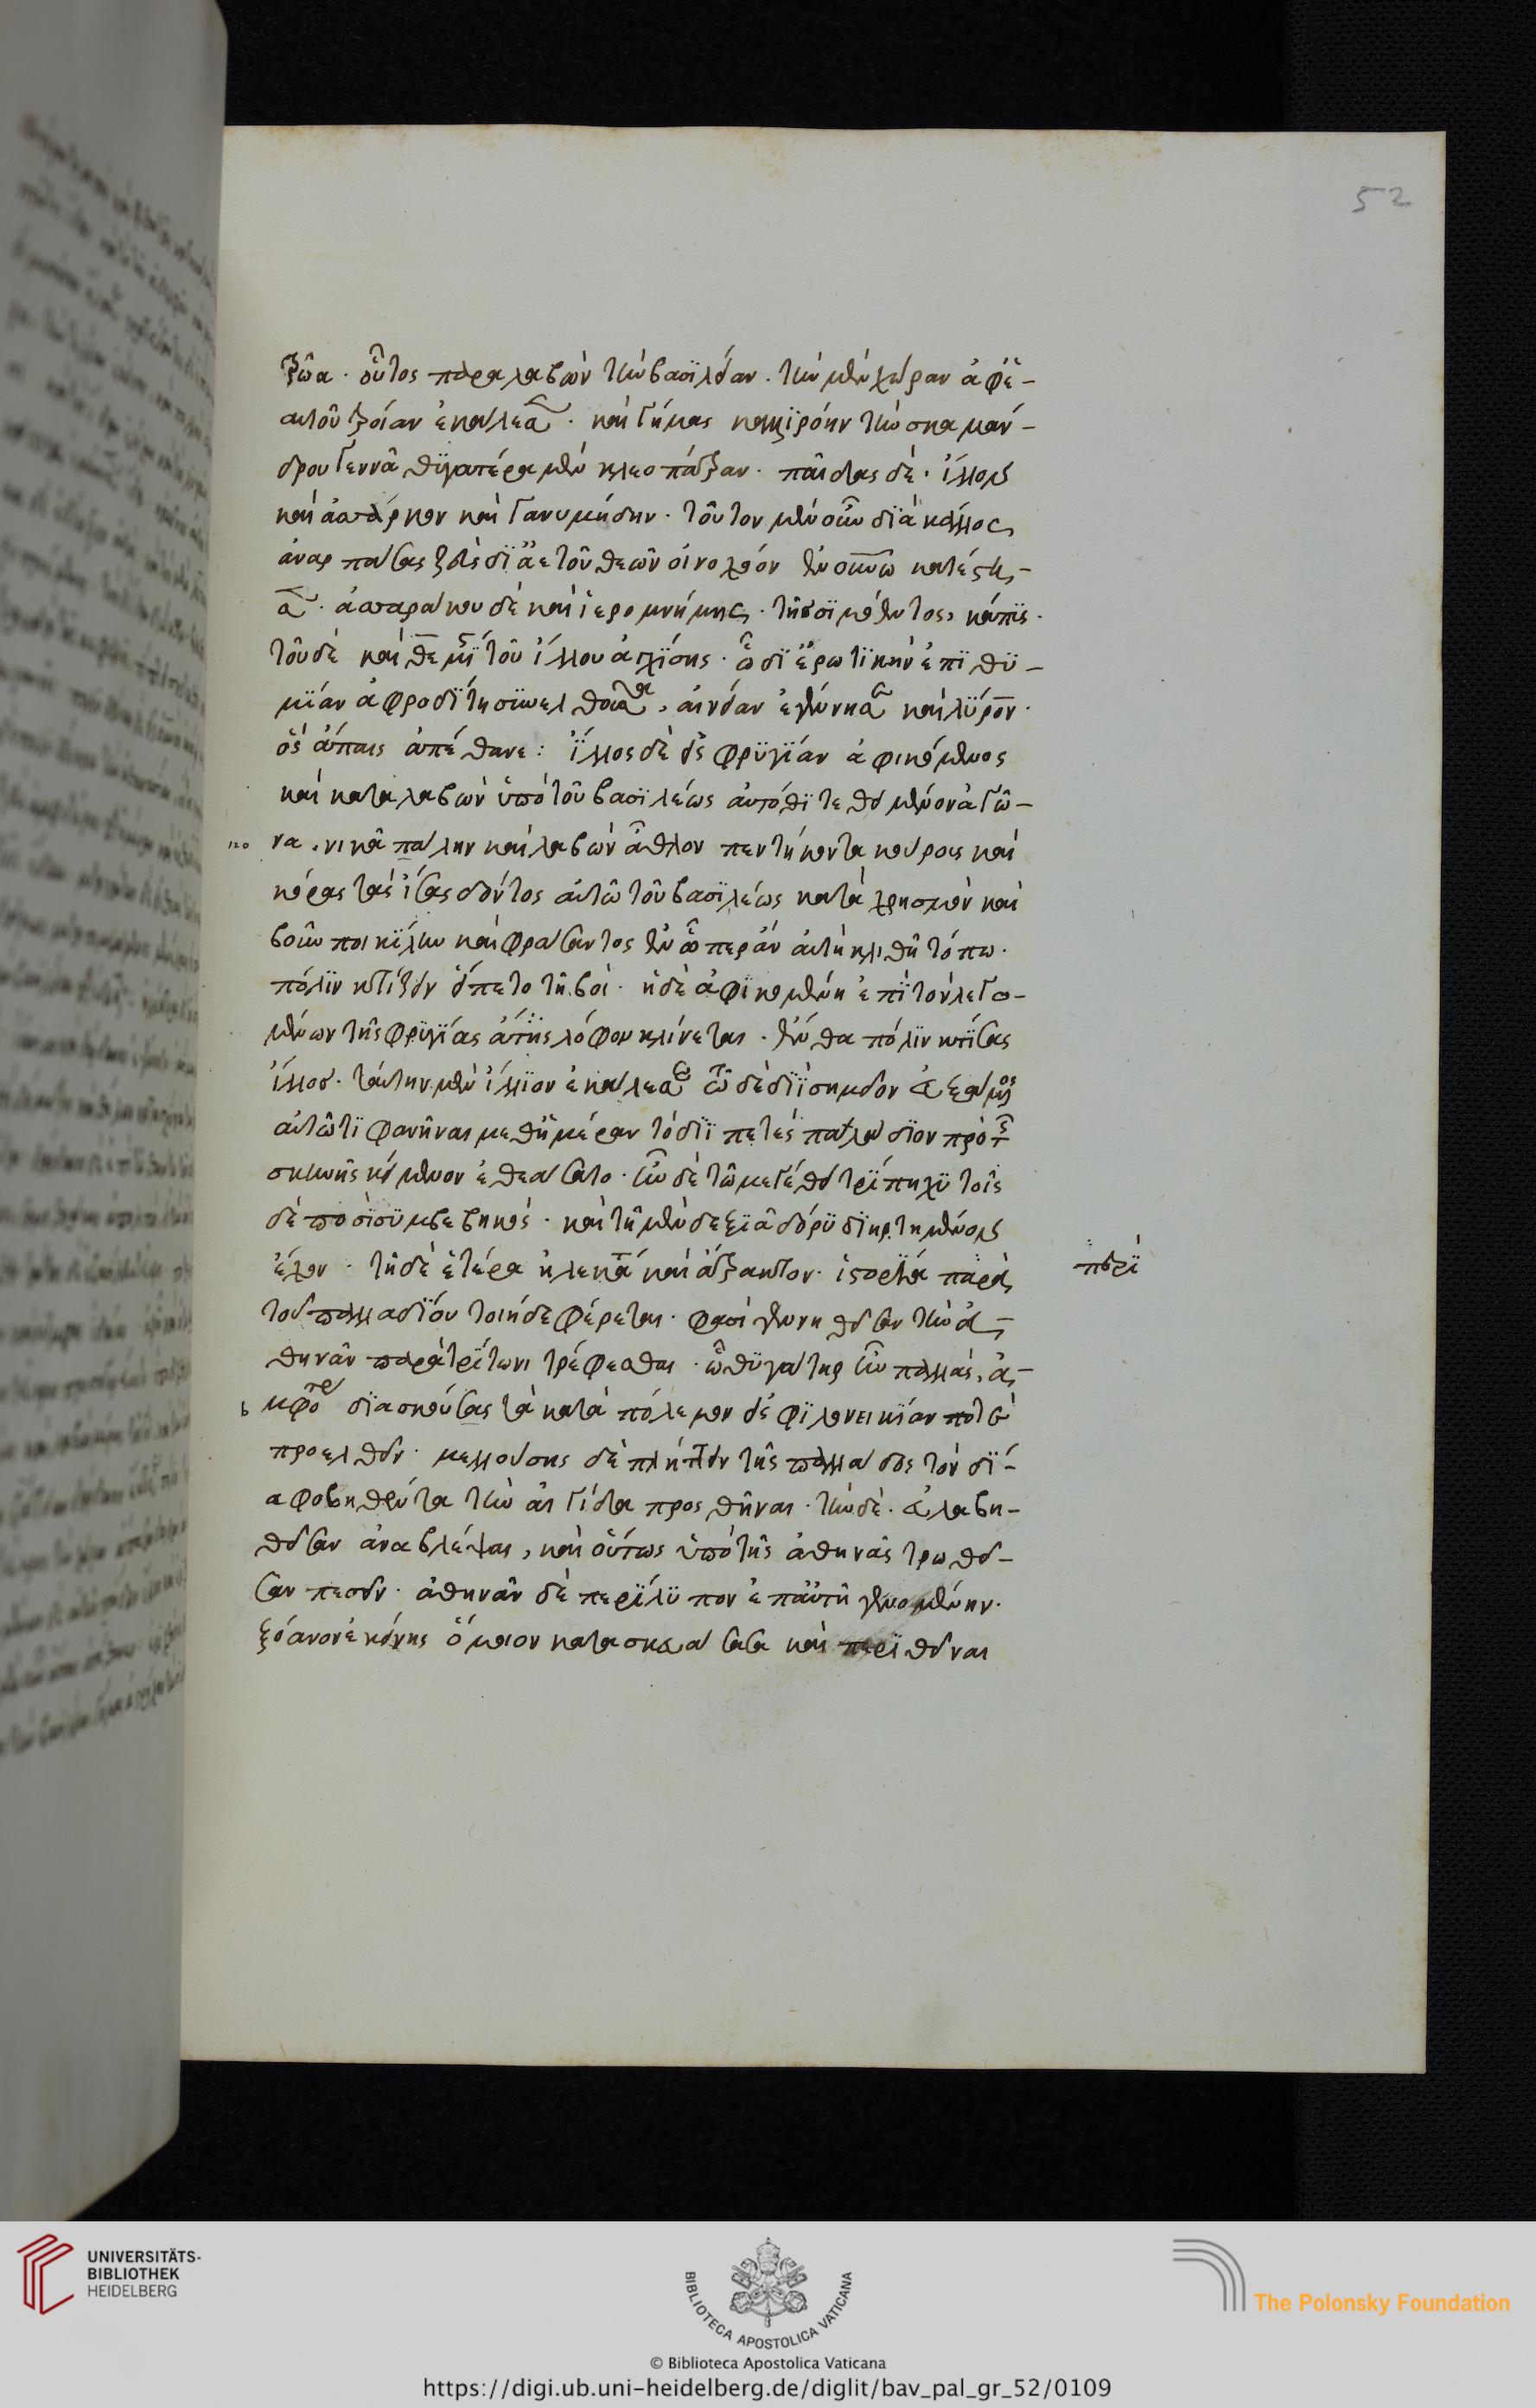 52
τρῶα · οὗτος παραλαβὼν τὴν βασιλείαν · τὴν μὲν χώραν ἀφ' ἑ-
αυτοῦ τροίαν ἐκάλεσε · καὶ γήμας καλλιρόην τὴν σκαμάν-
δρου γεννᾶ θυγατέρα μὲν κλεοπάτραν · παῖδας δὲ · ἴλλον
καὶ ἀσάρκον καὶ γανυμήδην · τοῦτον μὲν οὖν διὰ κάλλος
ἀναρπάσας ζεὺς δι' ἀετοῦ θεῶν οἰνοχόον ἐν οὐνῶ κατέστη-
σε · ἀσαράκου δὲ καὶ ἱερομνήμης · τῆς σιμόεντος, κάπις ·
τοῦ δὲ καὶ θεμίστης τοῦ ἴλλου ἀγχίσης · ὧ δι' ἐρωτικὴν ἐπιθυ-
μίαν ἀφροδίτη συνελθοῦσα, αἰνείαν ἐγέννησε καὶ λύρον ·
ὃς ἄπαις ἀπέθανε : ἴλλος δὲ εἰς φρυγίαν ἀφικόμενος
καὶ καταλαβὼν ὑπὸ τοῦ βασιλέως αὐτόθι τεθειμένον ἀγῶ-
120 να · νικᾶ πάλην καὶ λαβὼν ἆθλον πεντήκοντα κούρους καὶ
κόρας τὰς ἴσας δόντος αὐτῶ τοῦ βασιλέως κατὰ χρησμὸν καὶ
βοῦν ποικίλην καὶ φράσαντος ἐν ὧπερ ἂν αὐτὴ κλιθῆ τόπω ·
πόλιν κτίζειν εἵπετο τῆ βοΐ · ἡ δὲ ἀφικομένη ἐπὶ τὸν λεγό-
μενον τῆς φρυγίας ἄτης λόφον κλίνεται · ἔνθα πόλιν κτίσας
ἴλλος · ταύτην μὲν ἴλλιον ἐκάλεσε τῶ δὲ διῒ σημεῖον εὐξάμενος
αὐτῶ τι φανῆναι μεθ' ἡμέραν τὸ διϊπετὲς παλάδιον πρὸ τῆς
σκηνῆς κείμενον ἐθεάσατο · ἦν δὲ τῶ μεγέθει τρίπηχυ τοῖς
δὲ ποσὶ συμβεβηκός · καὶ τῆ μὲν δεξιᾶ δόρυ διηρτημένον
ἔχον · τῆ δὲ ἑτέρα ἠλεκάτην καὶ ἄτρακτον · ἱστορία παρὰ
περὶ
τοῦ παλλαδίου τοιήδε φέρεται · φασὶ γεννηθεῖσαν τὴν ἀ-
θηνᾶν παρὰ τρίτωνι τρέφεσθαι · ὧ θυγάτηρ ἦν παλλάς, ἀ-
b μφοτέρας δὲ ἀσκούσας τὰ κατὰ πόλεμον εἰς φιλονεικίαν ποτὲ
προελθεῖν · μελλούσης δὲ πλήττειν τῆς παλλάδος τὸν δί-
α φοβηθέντα τὴν αἰγίδα προσθῆναι · τὴν δὲ · εὐλαβη-
θεῖσαν ἀναβλέψαι, καὶ οὕτως ὑπὸ τῆς ἀθηνᾶς τρωθεῖ-
σαν πεσεῖν · ἀθηνᾶν δὲ περίλυπον ἐπ' αὐτῆ γενομένην ·
ξόανον ἐκείνης ὅμοιον κατασκευάσασα καὶ περιθεῖναι
UNIVERSITÄTS-
BIBLIOTHEK
HEIDELBERG
BIBLIOTECA APOSTOLICA VATICANA
© Biblioteca Apostolica Vaticana
The Polonsky Foundation
https://digi.ub.uni-heidelberg.de/diglit/bav_pal_gr_52/0109